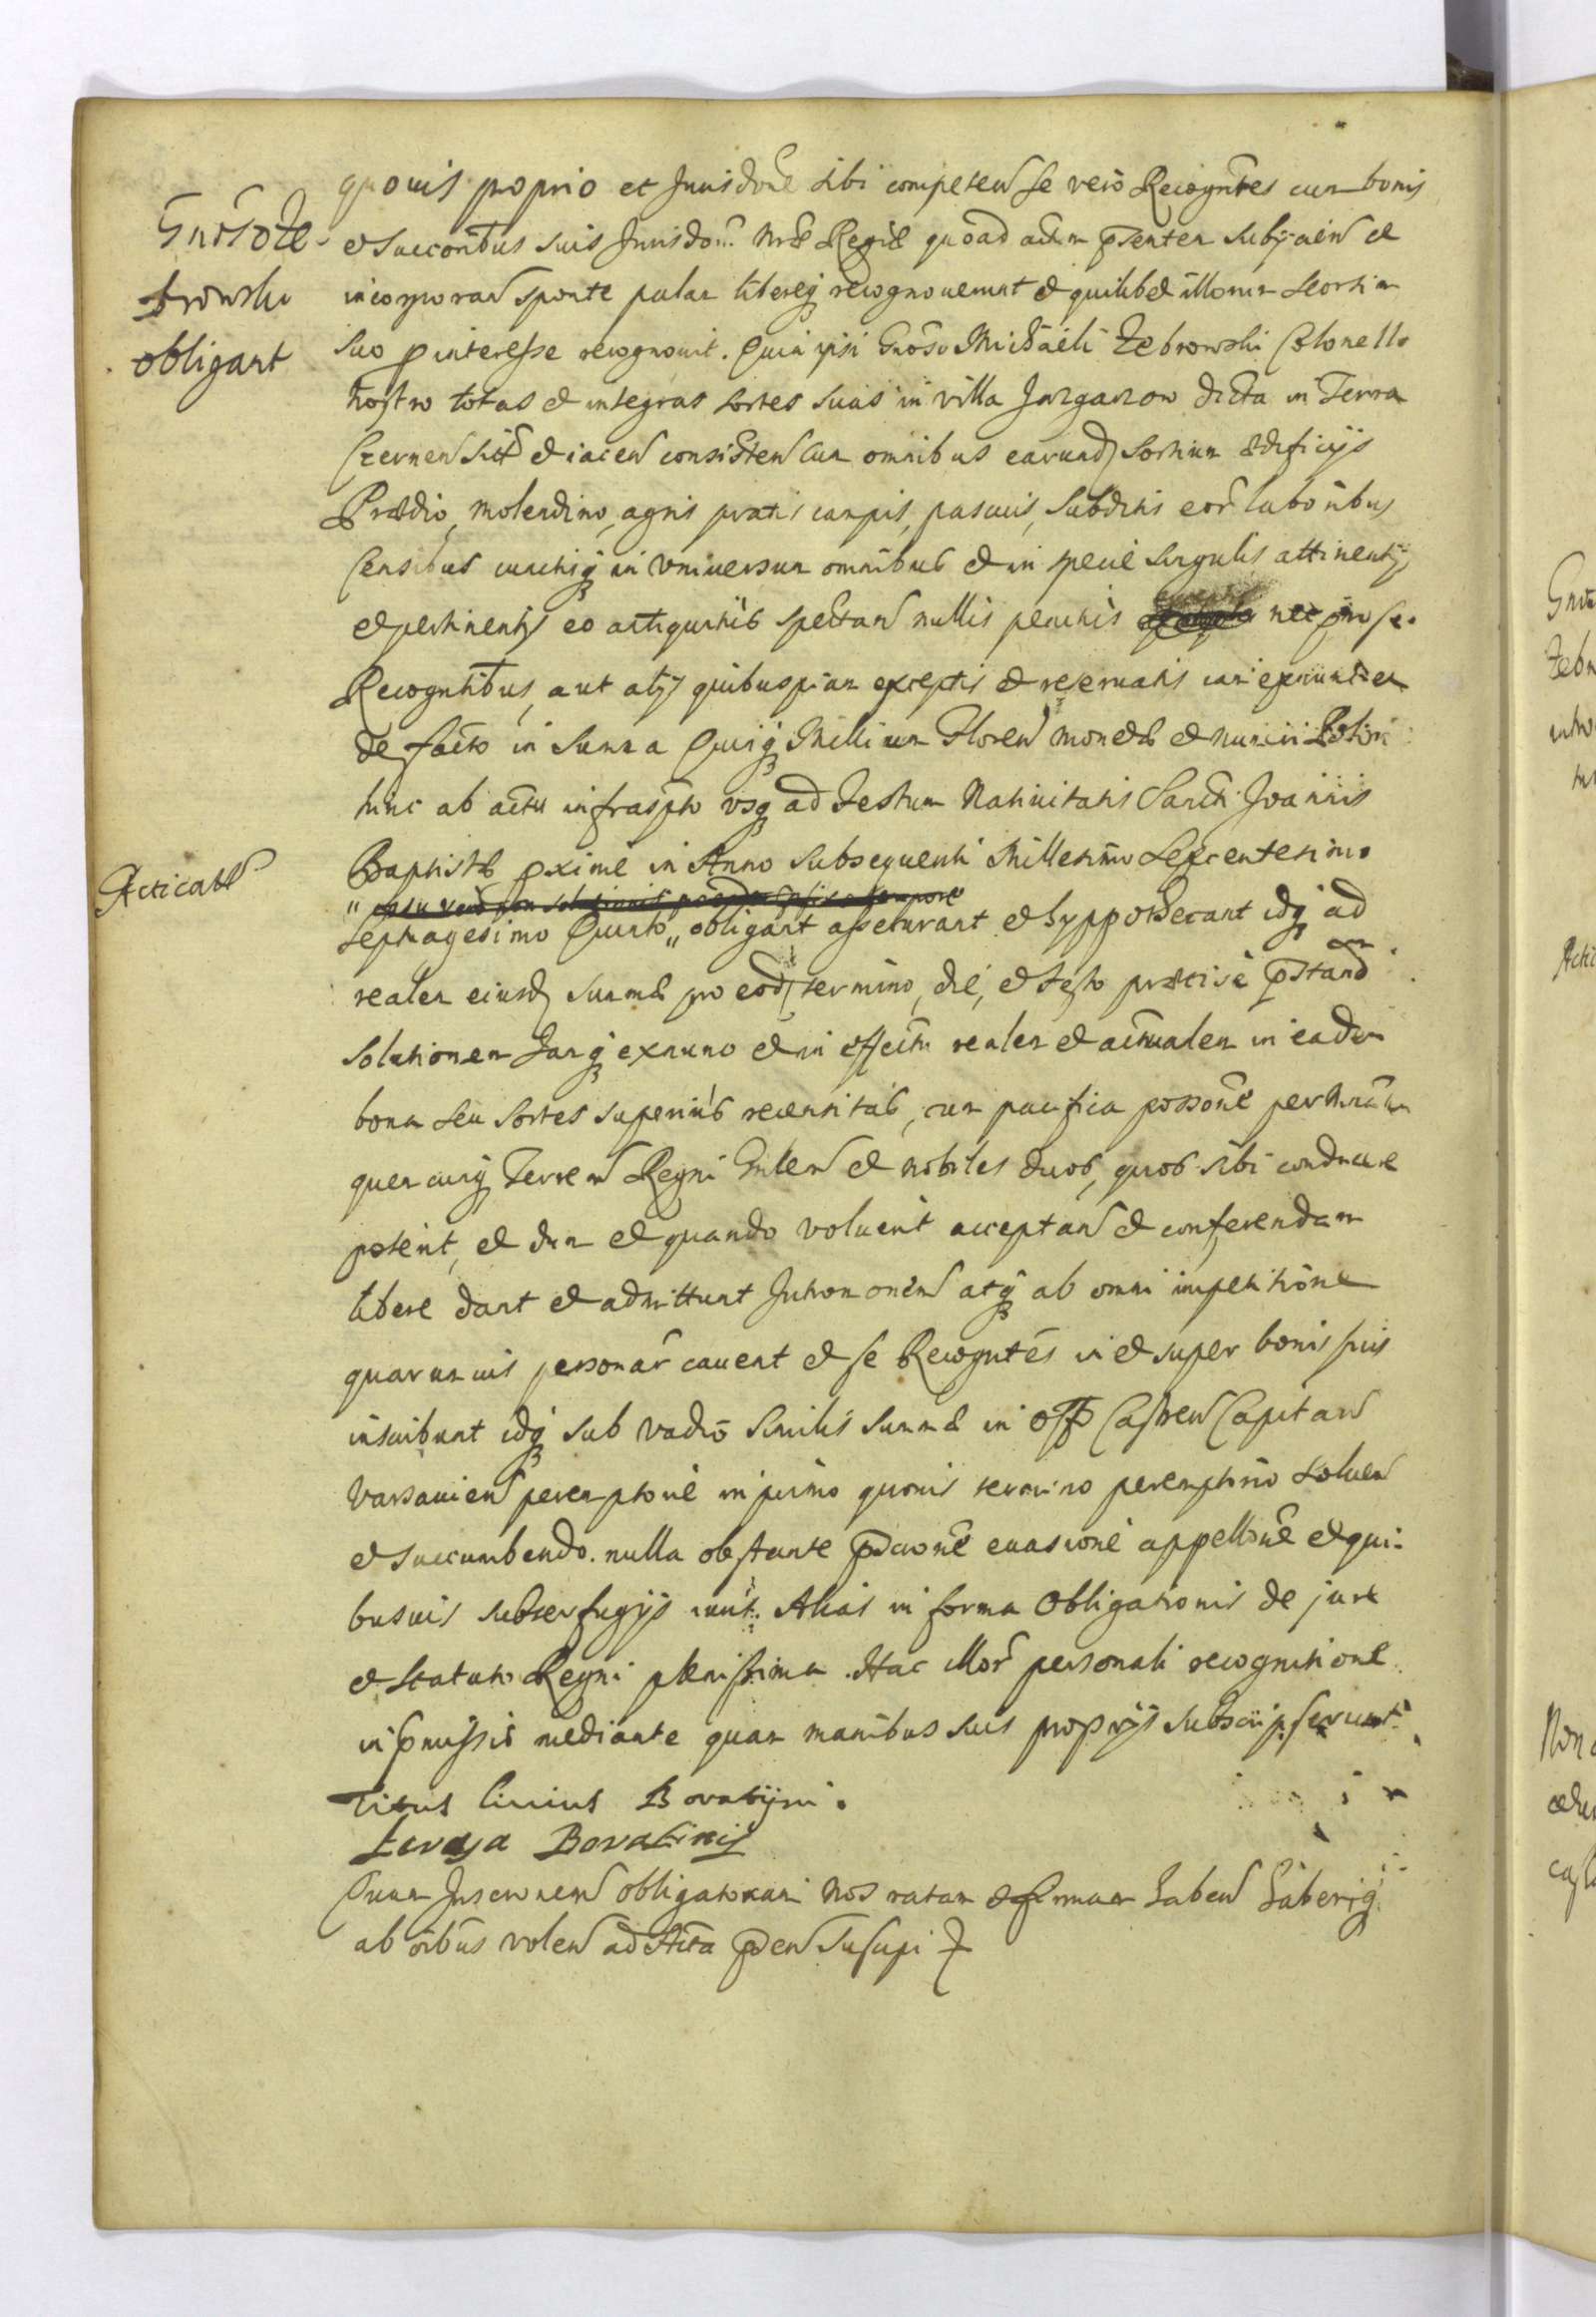 quovis proprio et Jurisdone sibi competen se vero Recogntes cum bonis
Gnoso Ze-
browski
obligant
et succoribus suis Jurisdoni Nræ Regiæ quoad actum pntem subijcien et
incorporan sponte palam libereq recognoverunt et quilibet illorum seorsim
suo pinteresse recognovit. Quia ipsi Gnoso Michaeli Zebrowski Colonello
nostro totas et integras sortes suas in villa dicta in Terra
Czernen sit et iacen consisten cum omnibus earund sortium ædificijs
Prædio, molendino, agris pratis campis, pascuis, subditis eor laboribus
Censibus cunctisq in universum omnibus et in specie singulis attinentijs
et pertinentijs eo antiquitus spectan nullis penitus nec pro se
Recogntibus, aut alijs quibuspiam exceptis et reservatis iam exnunc et
de facto in summa Quinq Millium Floren monetæ et numeri Polon
hinc ab actu infrascpto usq ad Festum Nativitatis Sancti Joannis
Acticatæ
Baptistæ pxime in Anno subsequenti Millesimo Sexcentesimo
Septuagesimo Quinto obligant assecurant et hyppothecant idq ad
realem eiusd summæ pro eod termino, die, et festo præcise pstand
am
solutionem Jamq exnunc et in effectu realem et actualem in eadem
bona seu sortes superius recensitas, cum pacifica possone per Ministrum
quemcunq Terren Regni Gnlem et nobiles duos, quos sibi conducere
poterit, et dum et quando voluerit acceptan et conferendam
libere dant et admittunt Intromonem atq ab omni impetitione
quarumvis personar cavent et se Recogntes in et super bonis suis
inscribunt idq sub vadio similis summæ in Off Castren Capitan
Varsavien peremptorie in primo quovis termino peremptorio solven
et succumbendo. nulla obstante evasione appellone et qui-
busvis subterfugijs iuris. Alias in forma Obligationis de jure
et statuto Regni plenissima. Hac illor personali recognitione
in pmissis mediante quam manibus suis proprijs subscripserunt.
Titus Livius Boratijni.
Teresa Boratinis
Quam Inscronem obligatoriam Nos ratam et firmam haben haberiq
ab oibus volen ad Acta pden suscepi